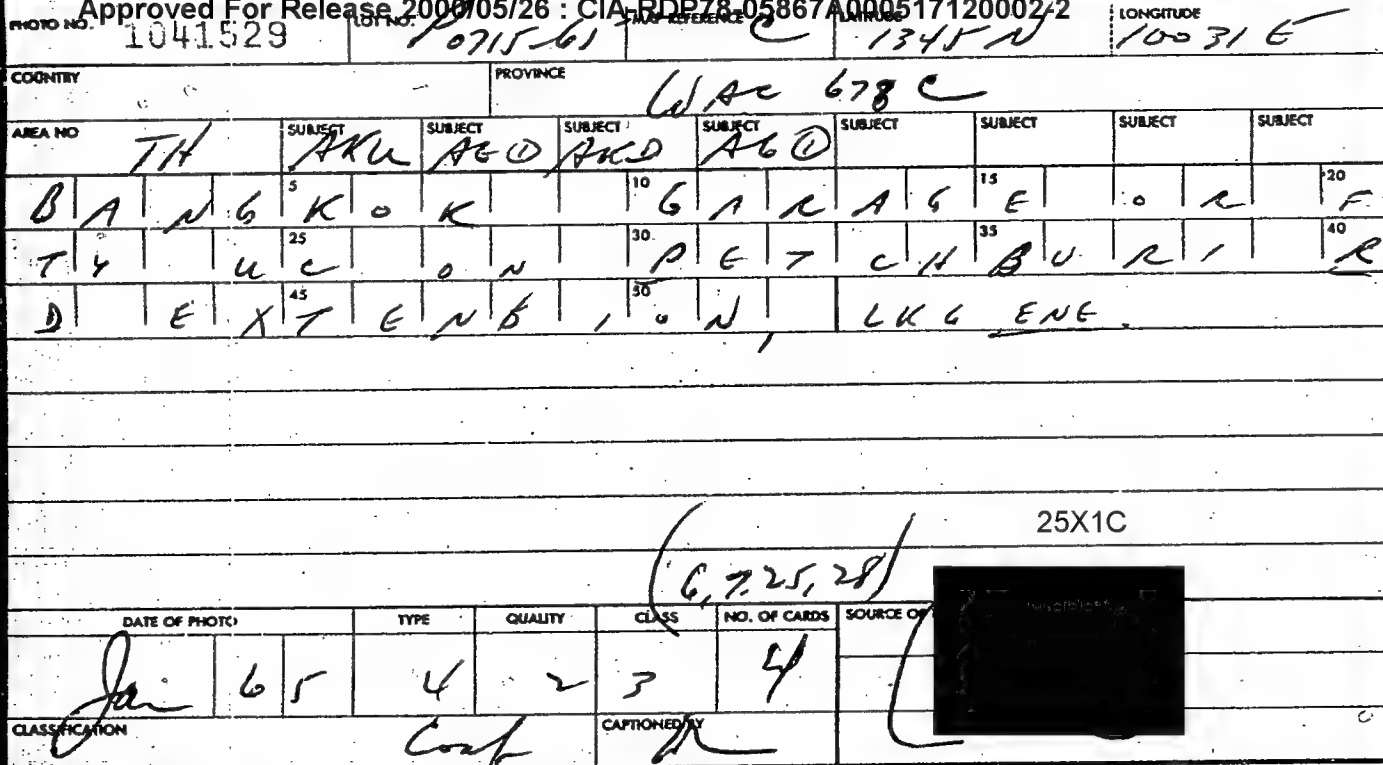 Approved For Release 2000/05/26 : CIA-RDP78-05867A000517120002-2
PHOTO NO. 1041529 LOT NO. P0715-61 MAP REFERENCE C LATITUDE 1345 N LONGITUDE 100 31 E
COUNTRY PROVINCE WAC 678 C
AREA NO TH SUBJECT AKU SUBJECT AE① SUBJECT AKD SUBJECT AG① SUBJECT SUBJECT SUBJECT SUBJECT
BANGKOK 5 10 GARAGE 15 OR 20 F
TY UC 25 ON 30 PETCHBURI 35 40 R
D EXTENSION, 45 50 LKG ENE.
25X1C
(6, 7, 25, 28)
DATE OF PHOTO TYPE QUALITY CLASS NO. OF CARDS SOURCE OF
Jan 65 4 2 3 4
CLASSIFICATION Conf CAPTIONED BY